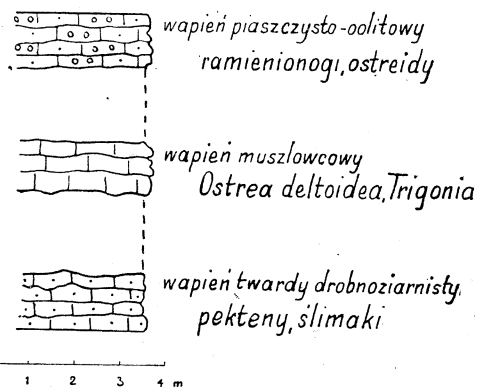 wapień piaszczysto-oolitowy
ramienionogi, ostreidy
wapień muszlowcowy
Ostrea deltoidea, Trigonia
wapień twardy drobnoziarnisty,
pekteny, ślimaki
1 2 3 4 m